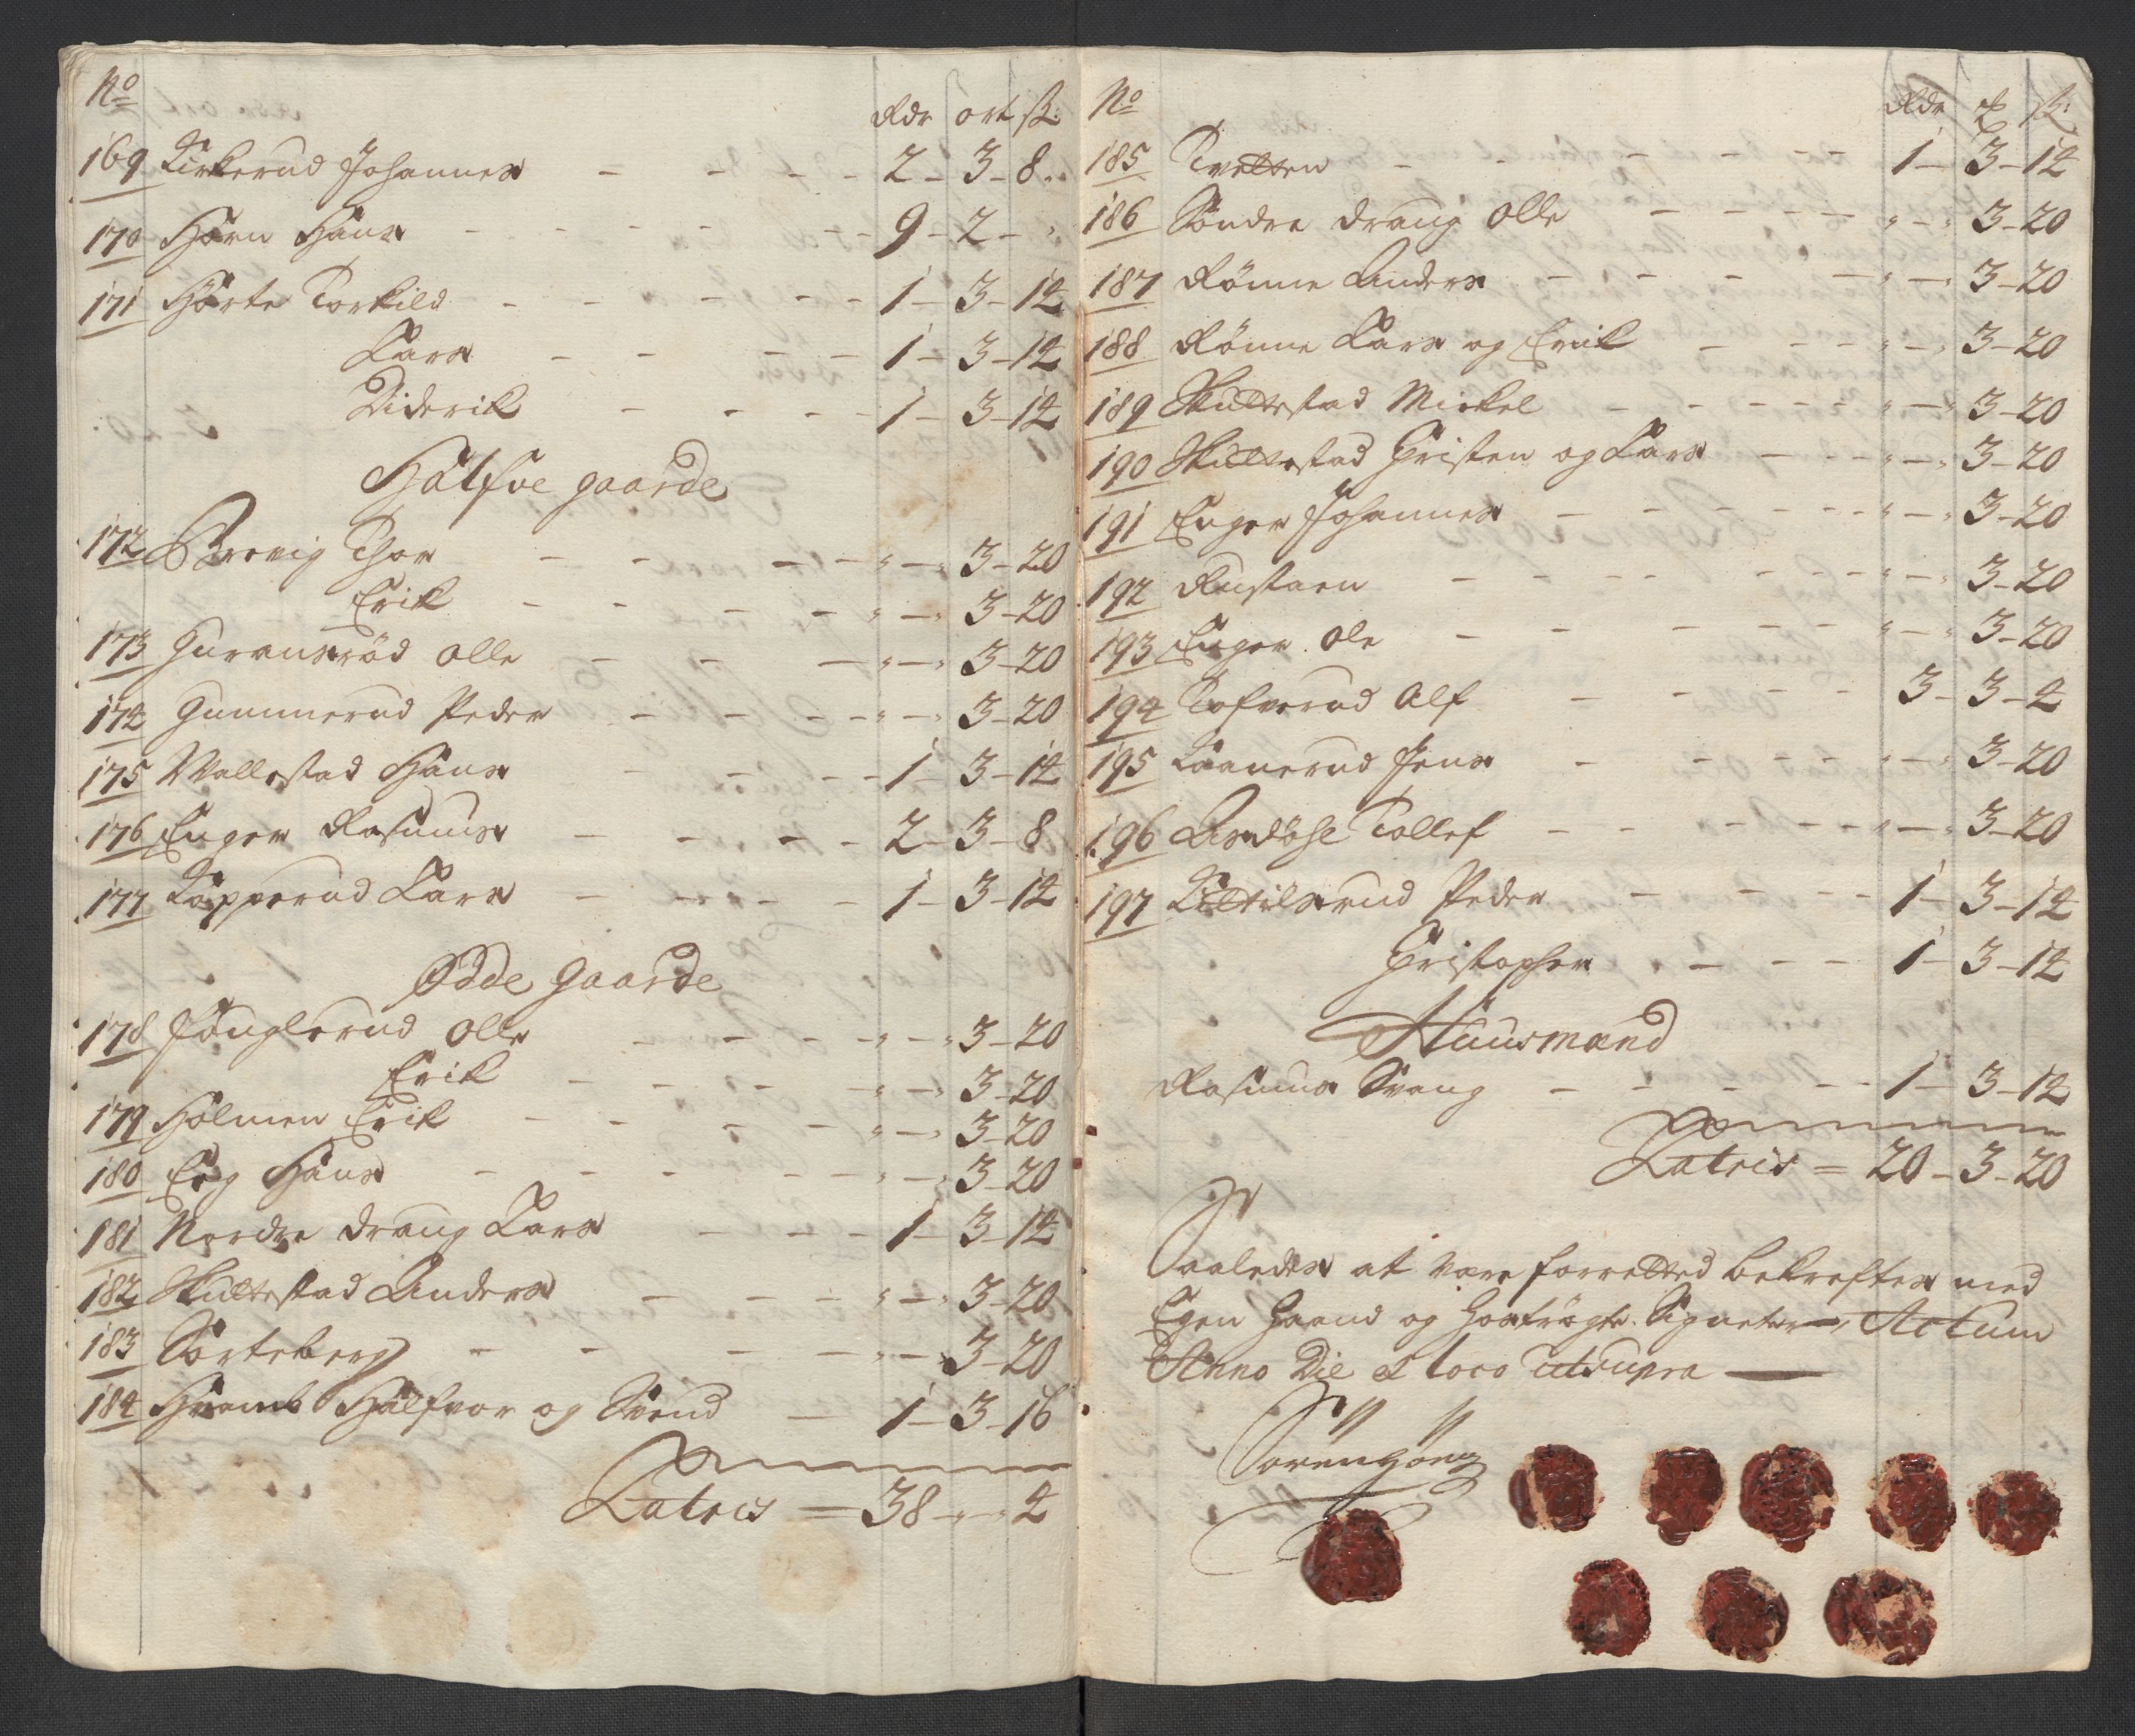 No Rdr ort ß:
169 Kirkerud Johannes - - - - 2 - 3 - 8..
170 Hørn Hans - - - - - - 9 - 2 - "
171 Hørte Torkild - - - - - 1 - 3 - 12
Lars - - - - 1 - 3 - 12
Diderik - - - - 1 - 3 - 12
Halfve gaarde
172 Brevig Thor - - - - " - " 3 - 20
Erik - - - - " - " 3 - 20
173 Guransrød Olle - - - " - " 3 - 20
174 Gunnerud Peder - - - - " - " 3 - 20
175 Vallestad Hans - - - - 1 - 3 - 12
176 Enger Rasmus - - - - 2 - 3 - 8
177 Kopperud Lars - - - - 1 - 3 - 12
Ødde gaarde
178 Jønglerud Olle - - - - " - " 3 - 20
Erik - - - - " - " 3 - 20
179 Holmen Erik - - - - " - " 3 - 20
180 Eeg Hans - - - - - " - " 3 - 20
181 Nordre Draug Lars - - - 1 - 3 - 12
182 Skullestad Anders - - - " - " 3 - 20
183 Sorteberg - - - - " - " 3 - 20
184 Hvamb Halfvor og Svend - 1 - 3 - 16
Latris = 38 - " - 4
No Rdr ß:
185 Tvetten - - - - - - 1 - 3 - 12
186 Søndre Draug Olle - - - - " - " 3 - 20
187 Rønne Anders - - - - " - " 3 - 20
188 Rønne Lars og Erik - - - " - " 3 - 20
189 Skullestad Mickel - - - - - " - " 3 - 20
190 Skullestad Christen og Lars - - - " - " 3 - 20
191 Enger Johannes - - - - - - " - " 3 - 20
192 Rustaen - - - - - - " - " 3 - 20
193 Enger Ole - - - - - " - " 3 - 20
194 Tofverud Alf - - - - 3 - 3 - 4
195 Laanerud Jens - - - - " - " 3 - 20
196 Aasdøhl Tollef - - - - - " - " 3 - 20
197 Kittilsrud Peder - - - - 1 - 3 - 12
Christopher - - - 1 - 3 - 12
Huusmænd
Rasmus Svang - - - - 1 - 3 - 12
Latris = 20 - 3 - 20
Saaledes at være forretted bekreftes med
Egen Haand og hostrøgte Signeter, Actum
Anno Die & loco utsupra